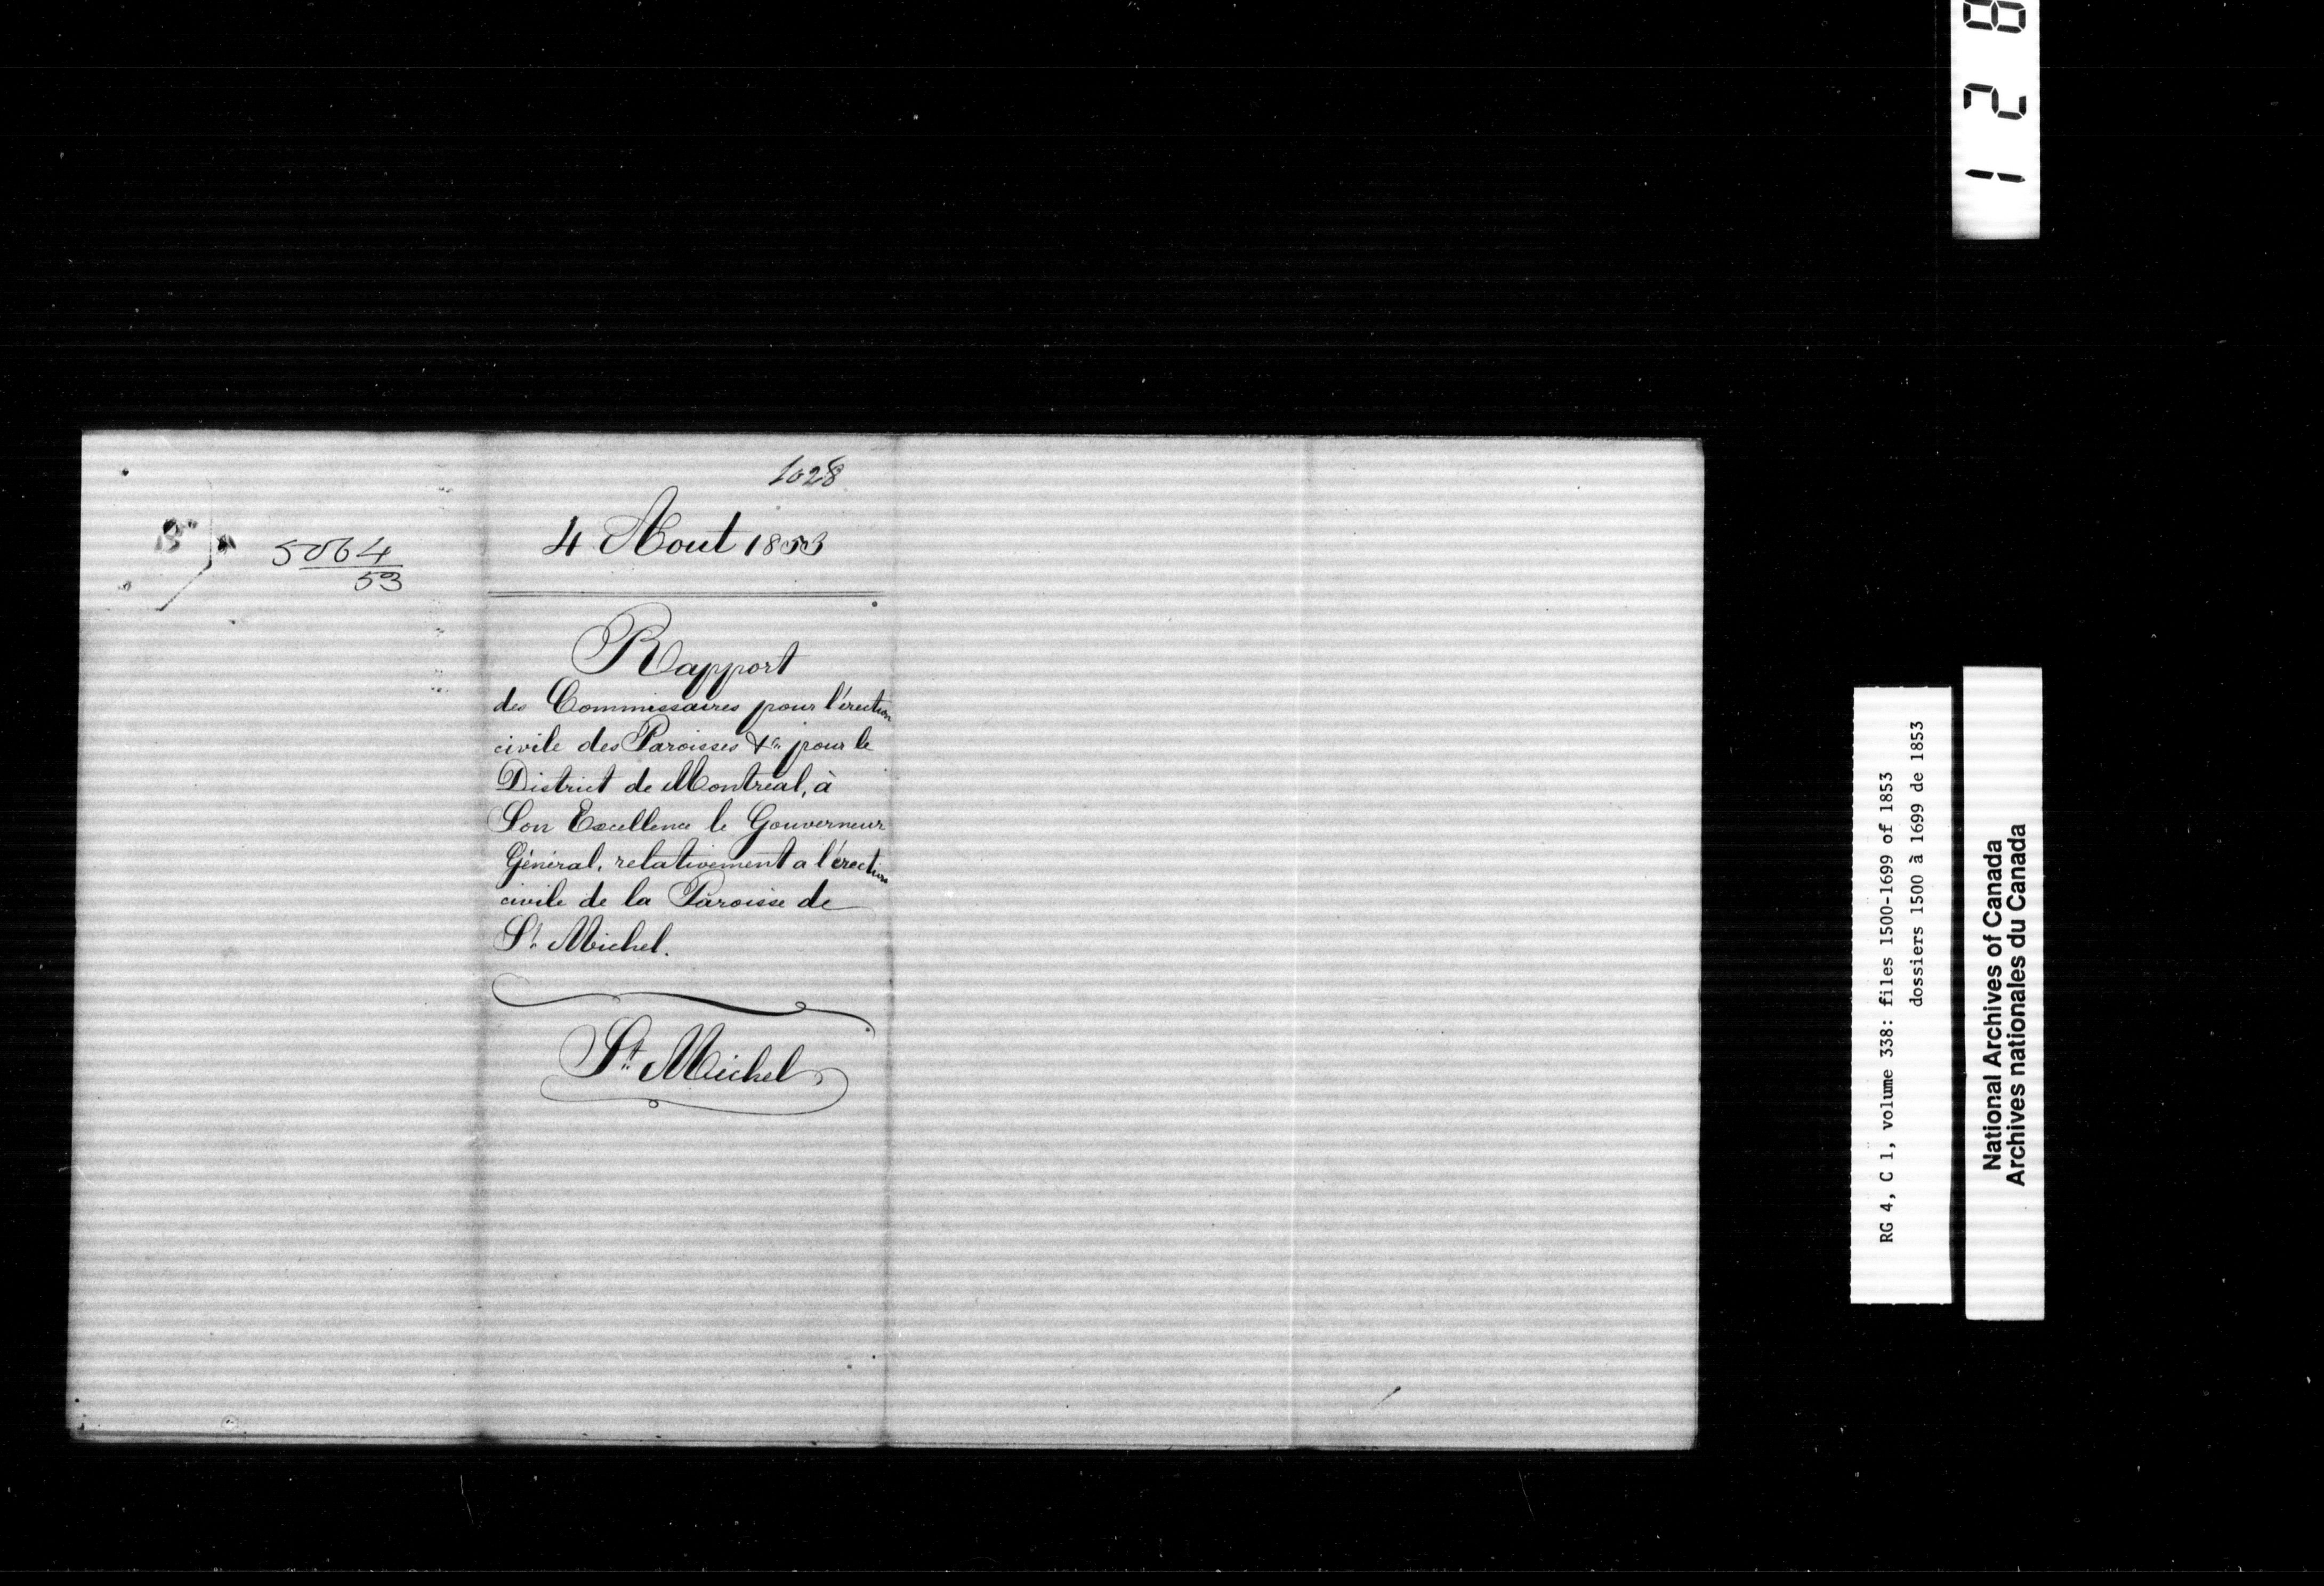 1028
4 Aout 1853
B
5064
53
Rapport
des Commissaires pour l'érection
civile des Paroisses &c. pour le
District de Montréal, à
Son Excellence le Gouverneur
Général, relativement a l'érection
civile de la Paroisse de
St. Michel.
St. Michel
1 2 8
RG 4, C 1, volume 338: files 1500-1699 of 1853
dossiers 1500 à 1699 de 1853
National Archives of Canada
Archives nationales du Canada